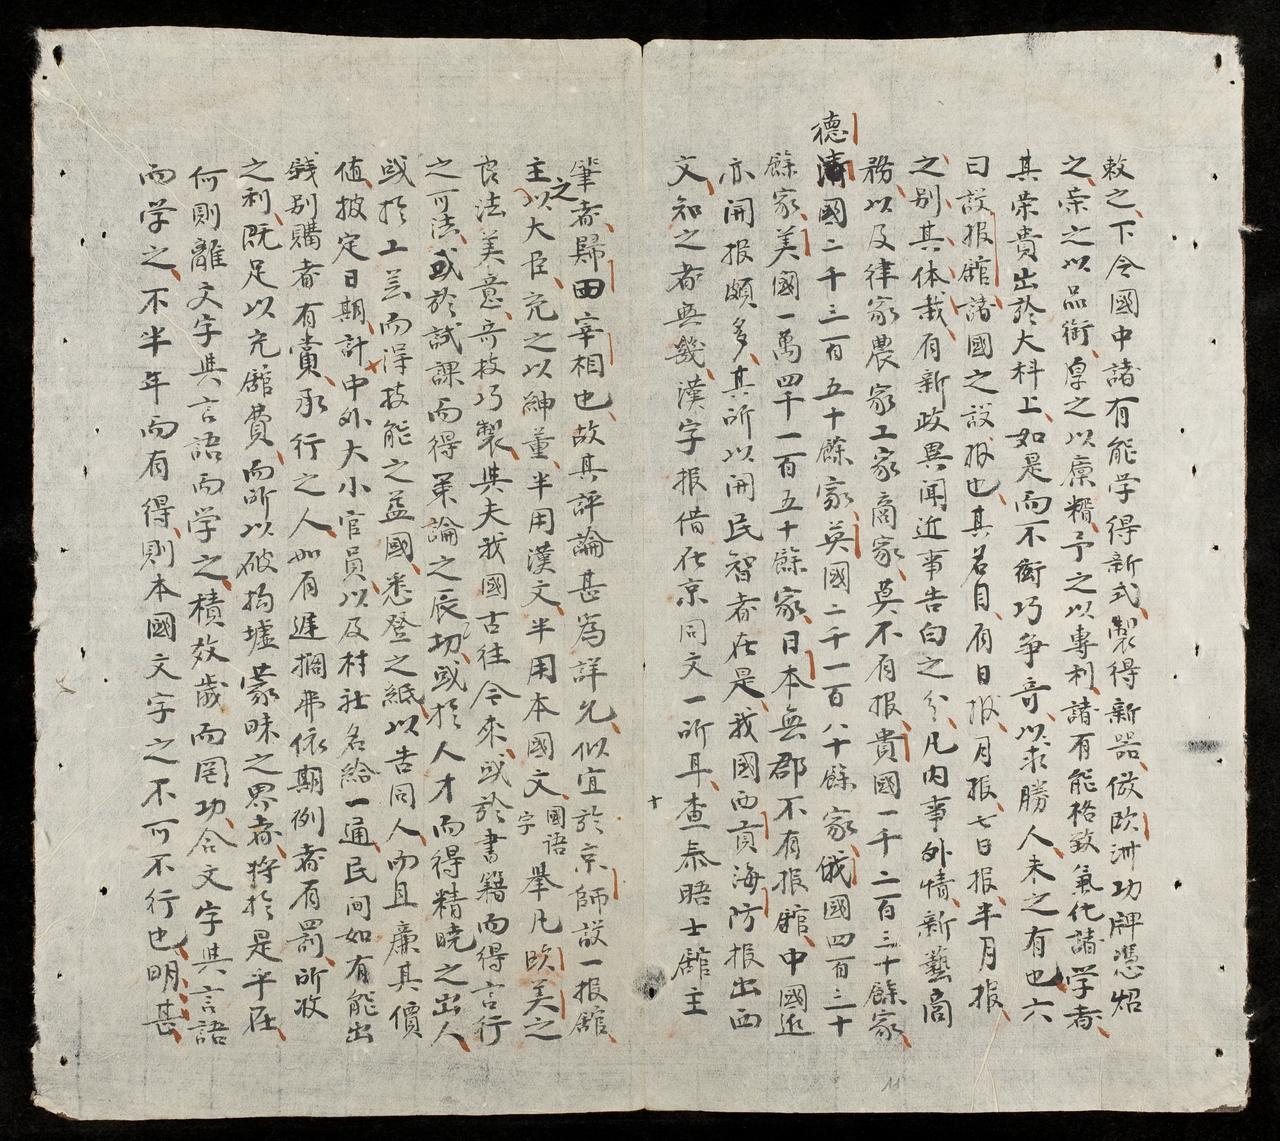 敕之下令國中諸有能学得新式製得新器倣欧洲功牌憑炤
之荣之以品銜厚之以廩糈予之以專利諸有能格致氣化諸学者
其荣貴出於大科上如是而不衒巧争竒以求勝人未之有也六
曰設报舘諸國之設报也其名目有日报月报七日报半月报
之别其体裁有新政異聞近事告白之分凡内事外情新藝商
務以及律家農家工家商家莫不有报貴國一千二百三十餘家
德國二千三百五十餘家英國二千一百八十餘家俄國四百三十
餘家美國一萬四千一百五十餘家日本無郡不有报舘中國近
亦開报頗多其所以開民智者在是我國西貢海防报出西
文知之者無幾漢字报借在京同文一所耳查泰晤士舘主
筆者歸田宰相也故其評論甚為詳允似宜於京師設一报舘
主之以大臣充之以紳董半用漢文半用本國文國語字舉凡欧美之
良法美意竒技巧製與夫我國古往今來或於書籍而得言行
之可法或於試課而得策論之辰切或於人才而得精曉之出人
或於工芸而得技能之益國悉登之紙以告同人而且廉其價
值披定日期計中外大小官員以及村社各給一通民间如有能出
錢别購者有賞承行之人如有遅搁弗依期例者有罰所收
之利既足以充舘費而所以破拘墟蒙昧之界者将於是乎在
何則離文字與言語而学之積效歲而罔功合文字與言語
而学之不半年而有得則本國文字之不可不行也明甚